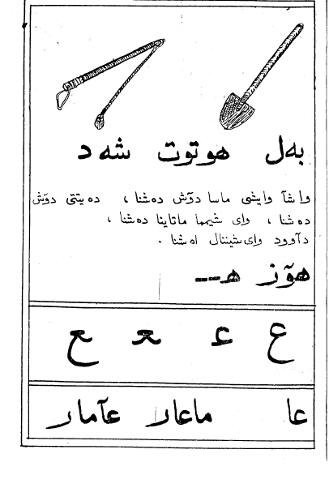 بەل هوتوت شەد
واشآ وایشی ماسا درۆش دەشنا ، دەیتی دۆش
دەشنا ، وای شیمما ماتاینا دەشنا ،
دآوود وای شیننال اەشنا .
هۆز هـ--
ع عـ ـعـ ـع
عا ماعار عآمار